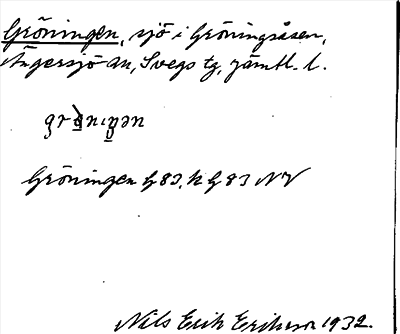 Gröningen, sjö i Gröningsåsen,
Ängersjö an, Svegs tg, Jämtl. l.
Gröningen G 83, h G 83 NV
Nils Erik Eriksson 1932.